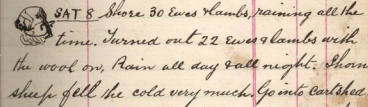 SAT 8 Shore 30 Ewes & lambs, raining all the
time. Turned out 22 Ewes & lambs with
the wool on, Rain all day & all night. Shorn
sheep fell the cold very much. Go into cartshed